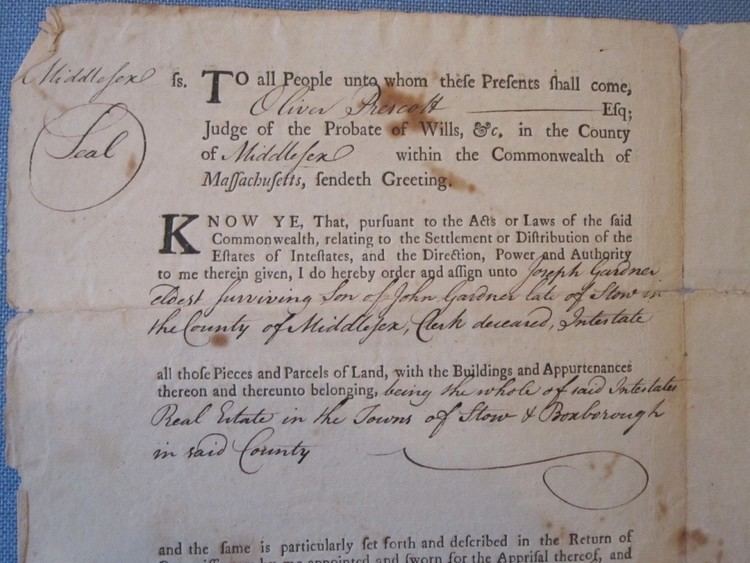 Middlesex ſs. TO all People unto whom theſe Preſents ſhall come,
Oliver Prescott Eſq;
Seal
Judge of the Probate of Wills, &c. in the County
of Middleſex within the Commonwealth of
Maſſachuſetts, ſendeth Greeting.
KNOW YE, That, purſuant to the Acts or Laws of the ſaid
Commonwealth, relating to the Settlement or Diſtribution of the
Eſtates of Inteſtates, and the Direction, Power and Authority
to me therein given, I do hereby order and aſſign unto Joseph Gardner
eldest surviving Son of John Gardner late of Stow in
the County of Middleſex, Clerk deceased, Intestate
all thoſe Pieces and Parcels of Land, with the Buildings and Appurtenances
thereon and thereunto belonging, being the whole of said Intestates
Real Estate in the Towns of Stow & Boxborough
in said County
and the ſame is particularly ſet forth and deſcribed in the Return of
by me appointed and ſworn for the Appriſal thereof, and